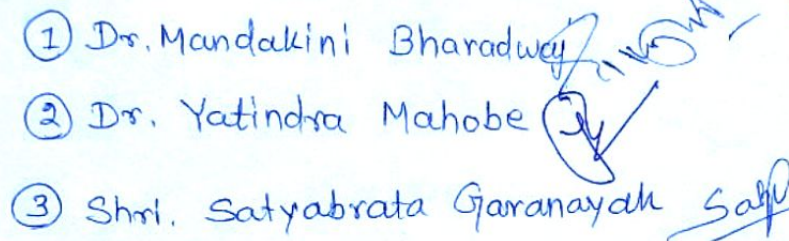 ① Dr. Mandakini Bharadwaj
② Dr. Yatindra Mahobe
③ Shri. Satyabrata Garanayak